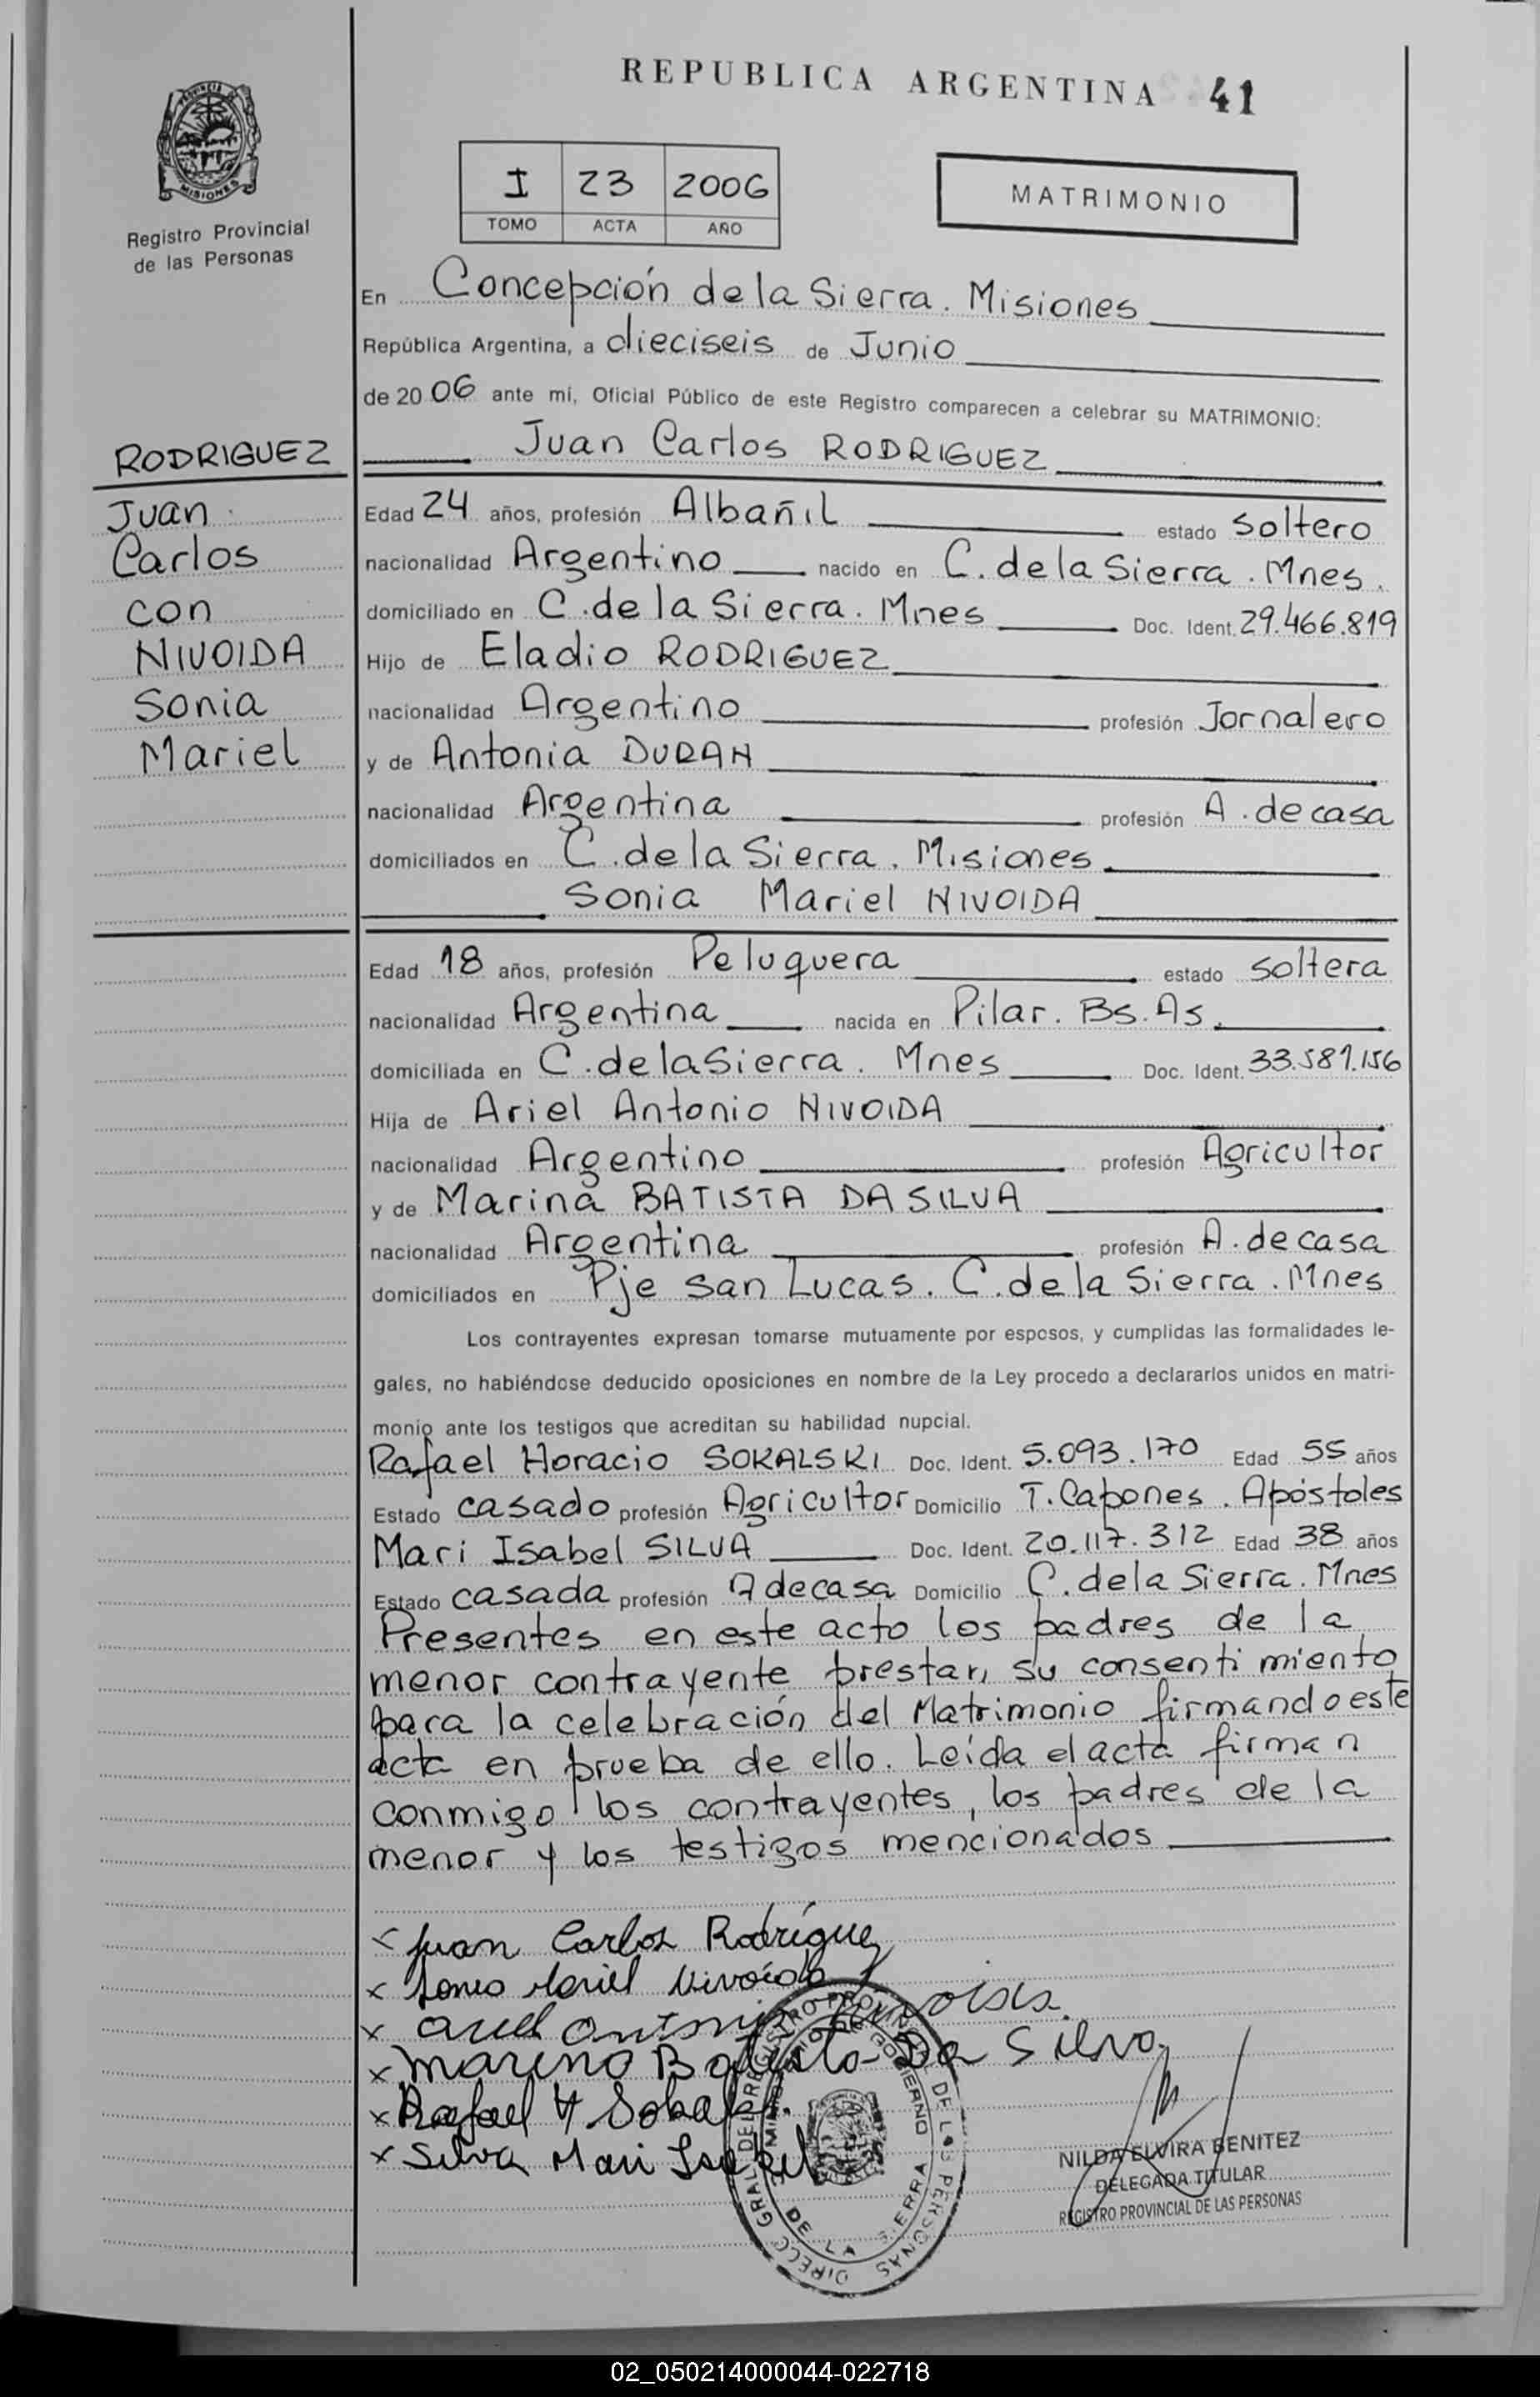 REPUBLICA ARGENTINA 41
MISIONES
Registro Provincial
de las Personas
I 23 2006
TOMO ACTA AÑO
MATRIMONIO
En Concepción de la Sierra. Misiones
República Argentina, a dieciseis de Junio
de 2006 ante mí, Oficial Público de este Registro comparecen a celebrar su MATRIMONIO:
Juan Carlos RODRIGUEZ
RODRIGUEZ
Juan
Carlos
con
NIVOIDA
Sonia
Mariel
Edad 24 años, profesión Albañil estado soltero
nacionalidad Argentino nacido en C. de la Sierra. Mnes.
domiciliado en C. de la Sierra. Mnes Doc. Ident. 29.466.819
Hijo de Eladio RODRIGUEZ
nacionalidad Argentino profesión Jornalero
y de Antonia DURAN
nacionalidad Argentina profesión A. de casa
domiciliados en C. de la Sierra. Misiones
Sonia Mariel NIVOIDA
Edad 18 años, profesión Peluquera estado soltera
nacionalidad Argentina nacida en Pilar. Bs. As.
domiciliada en C. de la Sierra. Mnes Doc. Ident. 33.587.156
Hija de Ariel Antonio NIVOIDA
nacionalidad Argentino profesión Agricultor
y de Marina BATISTA DA SILVA
nacionalidad Argentina profesión A. de casa
domiciliados en Pje San Lucas. C. de la Sierra. Mnes
Los contrayentes expresan tomarse mutuamente por esposos, y cumplidas las formalidades le-
gales, no habiéndose deducido oposiciones en nombre de la Ley procedo a declararlos unidos en matri-
monio ante los testigos que acreditan su habilidad nupcial.
Rafael Horacio SOKALSKI Doc. Ident. 5.093.170 Edad 55 años
Estado casado profesión Agricultor Domicilio T. Capones. Apóstoles
Mari Isabel SILVA Doc. Ident. 20.117.312 Edad 38 años
Estado casada profesión A de casa Domicilio C. de la Sierra. Mnes
Presentes en este acto los padres de la
menor contrayente prestan su consentimiento
para la celebración del Matrimonio firmando este
acta en prueba de ello. Leída el acta firman
conmigo los contrayentes, los padres de la
menor y los testigos mencionados
x Juan Carlos Rodríguez
x Sonia Mariel Nivoida
x Ariel Antonio Nivoida.
x Marina Batista Da Silva
x Rafael H Sokalski.
x Silva Mari Isabel
DIRECC GRAL DEL REGISTRO PROVINCIAL DE LAS PERSONAS
GOBIERNO
DE LA SIERRA
NILDA ELVIRA BENITEZ
DELEGADA TITULAR
REGISTRO PROVINCIAL DE LAS PERSONAS
02_050214000044-022718